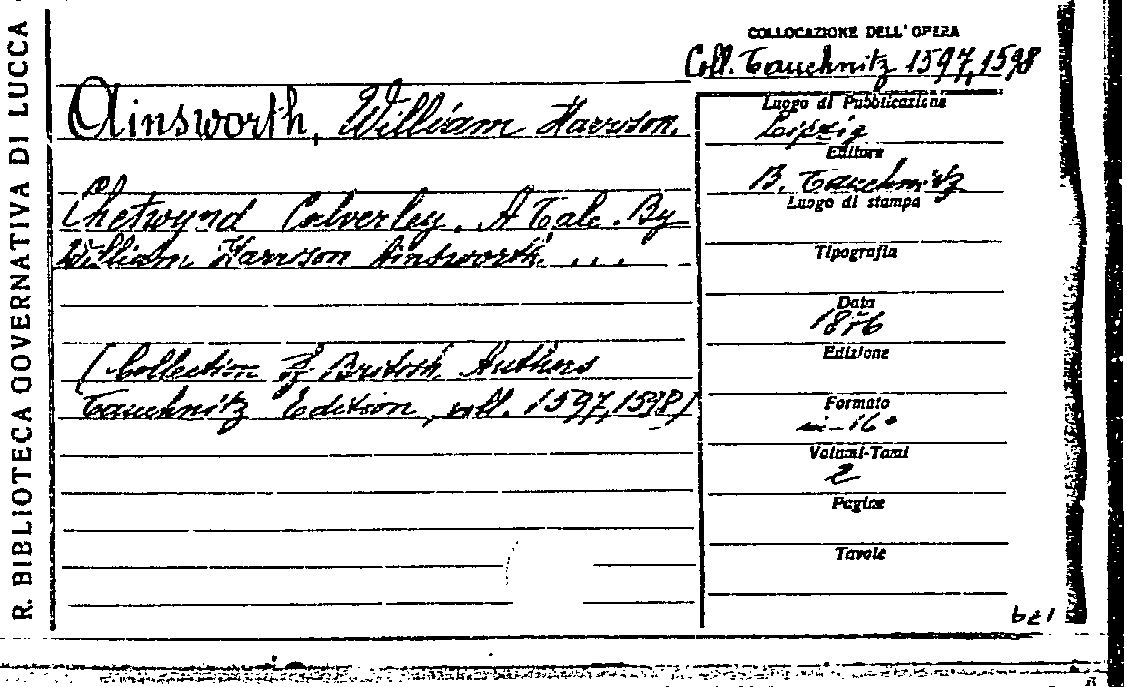 R. BIBLIOTECA GOVERNATIVA DI LUCCA
COLLOCAZIONE DELL'OPERA
Coll. Tauchnitz 1597, 1598
Ainsworth, William Harrison.
Chetwynd Calverley. A Tale. By
William Harrison Ainsworth. ...
(Collection of British Authors
Tauchnitz Edition, voll. 1597, 1598)
Luogo di Pubblicazione
Leipzig
Editore
B. Tauchnitz
Luogo di stampa
Tipografia
Data
1876
Edizione
Formato
in-16°
Volumi-Tomi
2
Pagine
Tavole